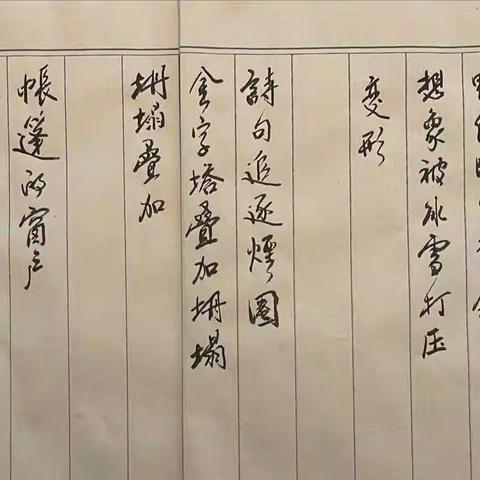 想象被冰雪打压
变形
詩句追逐煙圈
金字塔叠加坍塌
坍塌叠加
帳篷的窗户